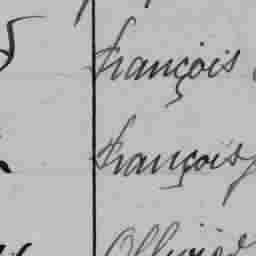 françois
françois
Ollivier